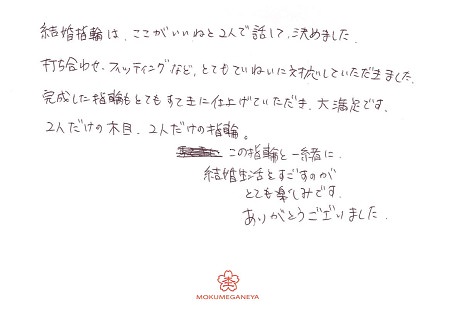 結婚指輪は、ここがいいねと2人で話して、決めました。
打ち合わせ、フィッティングなど、とてもていねいに対応していただきました。
完成した指輪もとてもすてきに仕上げていただき、大満足です。
2人だけの木目、2人だけの指輪。
この指輪と一緒に、
結婚生活をすごすのが
とても楽しみです。
ありがとうございました。
MOKUMEGANEYA